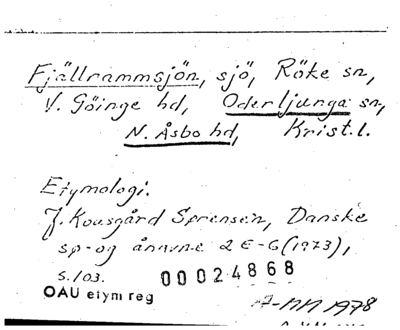 Fjällrammsjön, sjö, Röke sn,
V. Göinge hd, Oderljunga sn,
N. Åsbo hd, Krist. l.
Etymologi.
J. Kousgård Sørensen, Danske
sø- og ånavne 2 E-G (1973),
s. 103.
00024868
OAU etym reg
1978